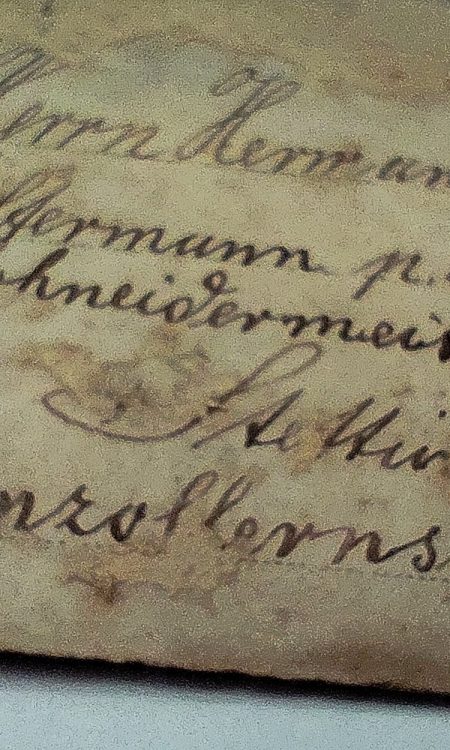 Herrn Herman
germann p.
chneidermeis
Stettin
nzollerns